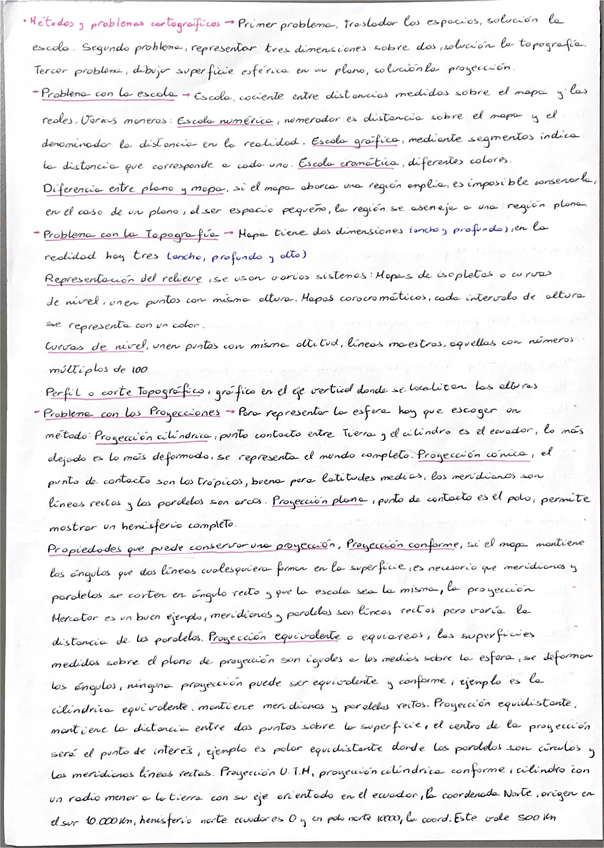 · Métodos y problemas cartográficos → Primer problema, trasladar los espacios, solución la
escala. Segundo problema, representar tres dimensiones sobre dos, solución la topografía.
Tercer problema, dibujar superficie esférica en un plano, solución la proyección.
- Problema con la escala → Escala, cociente entre distancias medidas sobre el mapa y las
reales. Varias maneras: Escala numérica, numerador es distancia sobre el mapa y el
denominador la distancia en la realidad. Escala gráfica, mediante segmentos indica
la distancia que corresponde a cada uno. Escala cromática, diferentes colores.
Diferencia entre plano y mapa, si el mapa abarca una región amplia, es imposible conservarla,
en el caso de un plano, al ser espacio pequeño, la región se asemeja a una región plana
- Problema con la Topografía → Mapa tiene dos dimensiones (ancho y profundo), en la
realidad hay tres (ancho, profundo y alto)
Representación del relieve, se usan varios sistemas: Mapas de isopletas o curvas
de nivel, unen puntos con misma altura. Mapas corocromáticos, cada intervalo de altura
se representa con un color.
Curvas de nivel, unen puntos con misma altitud, líneas maestras, aquellas con números
múltiplos de 100
Perfil o corte Topográfico, gráfico en el eje vertical donde se localizan las alturas
- Problema con las Proyecciones → Para representar la esfera hay que escoger un
método: Proyección cilíndrica, punto contacto entre Tierra y el cilindro es el ecuador, lo más
alejado es lo más deformado, se representa el mundo completo. Proyección cónica, el
punto de contacto son los trópicos, buena para latitudes medias, los meridianos son
líneas rectas y los paralelos son arcos. Proyección plana, punto de contacto es el polo, permite
mostrar un hemisferio completo.
Propiedades que puede conservar una proyección, Proyección conforme, si el mapa mantiene
los ángulos que dos líneas cualesquiera forman en la superficie, es necesario que meridianos y
paralelos se corten en ángulo recto y que la escala sea la misma, la proyección
Mercator es un buen ejemplo, meridianos y paralelos son líneas rectas pero varía la
distancia de los paralelos. Proyección equivalente o equiareas, las superficies
medidas sobre el plano de proyección son iguales a las medias sobre la esfera, se deforman
los ángulos, ninguna proyección puede ser equivalente y conforme, ejemplo es la
cilíndrica equivalente, mantiene meridianos y paralelos rectos. Proyección equidistante,
mantiene la distancia entre dos puntos sobre la superficie, el centro de la proyección
será el punto de interés, ejemplo es polar equidistante donde los paralelos son círculos y
los meridianos líneas rectas. Proyección U.T.M, proyección cilíndrica conforme, cilindro con
un radio menor a la tierra con su eje orientado en el ecuador, la coordenada Norte, origen en
el sur 10.000 Km, hemisferio norte ecuador es 0 y en polo norte 10000, la coord. Este vale 500 Km